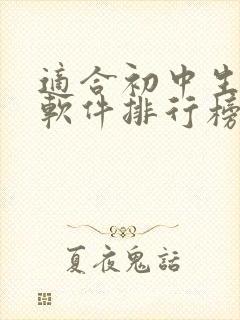 適合初中生
軟件排行榜
夏夜鬼話